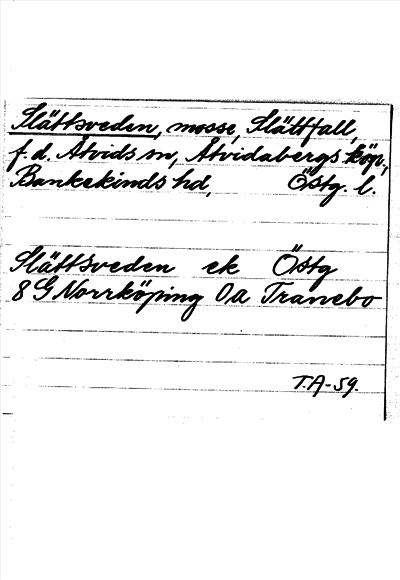 Slättsveden, mosse, Slättfall,
f.d. Åtvids sn, Åtvidabergs köp,
Bankekinds hd, Östg. l.
Slättsveden ek Östg
8 G Norrköping 0a Tranebo
T.A-59.